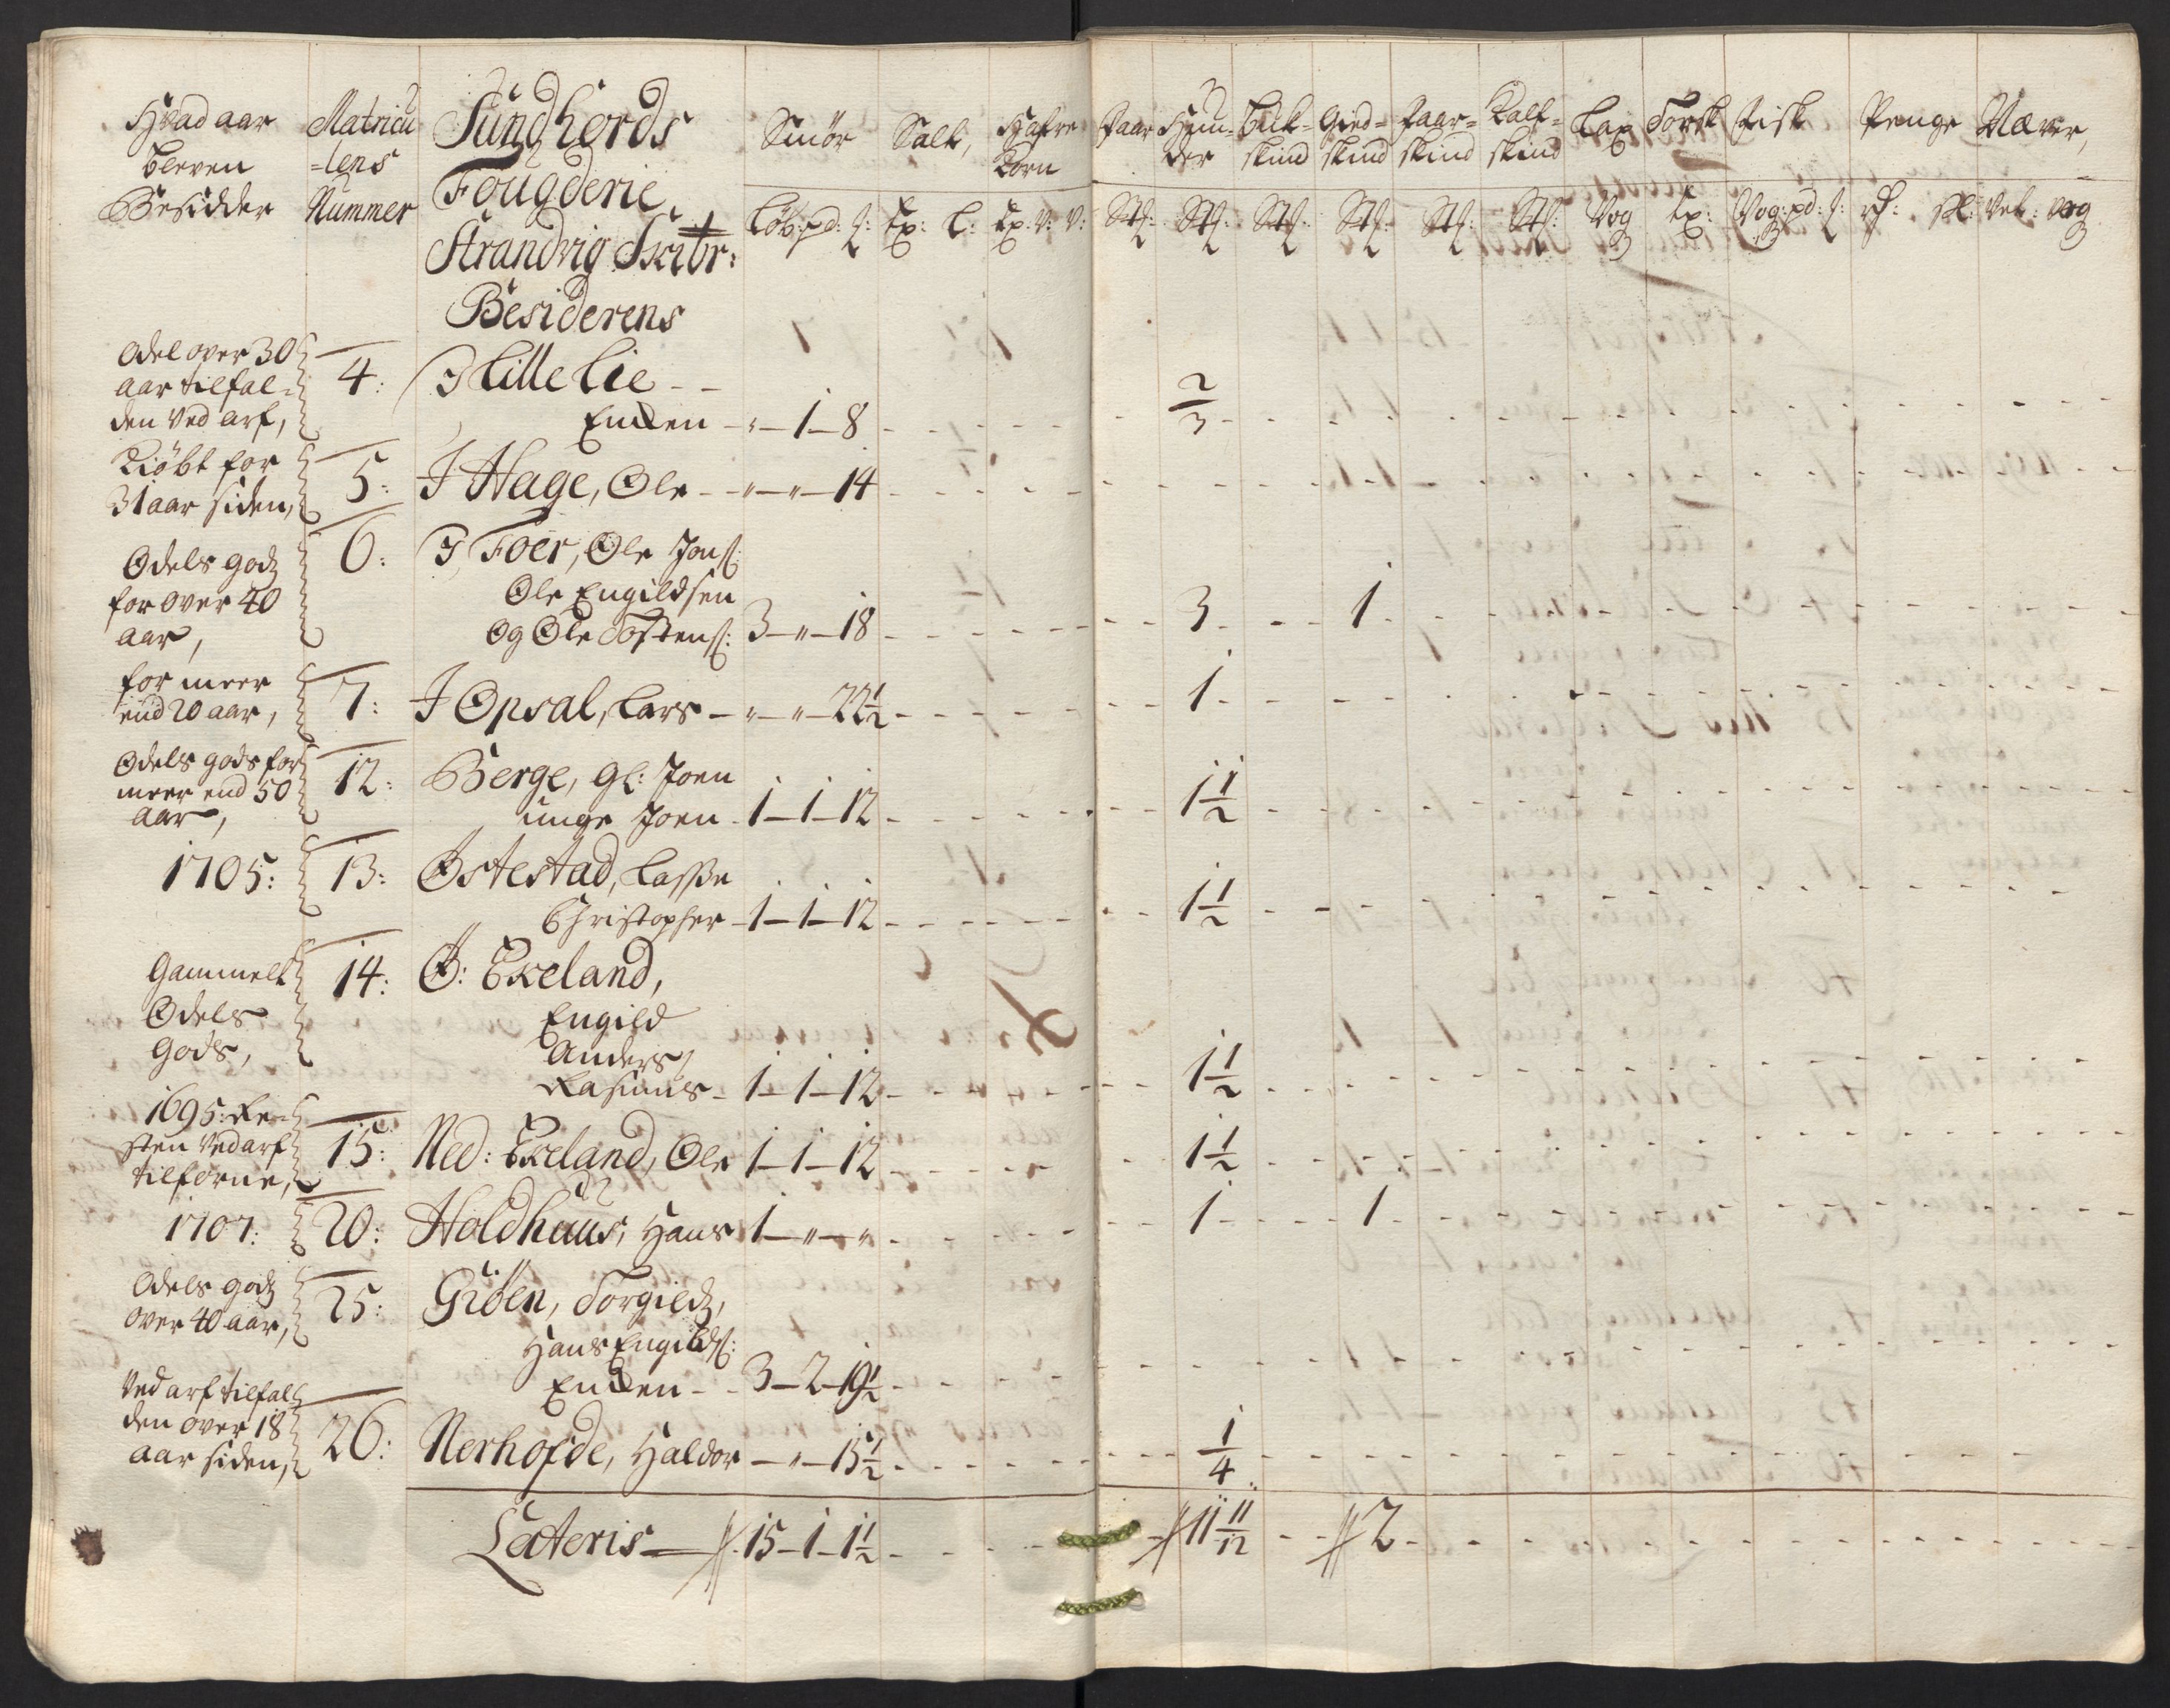 Hvad aar
bleven
Besidder
Matricu
=lens
Nummer
Sundhords
Fougderie
Strandvig Skibr:
Besiderens
Smör
Salt,
Hafre
Korn
Faar
Huu=
der
Buk=
skind
Gied=
skind
Faar=
skind
Kalf=
skind
Lax
Torsk
Fisk
Penge
Wærer,
Löb: pd: Vog Vog: pd: Sk: Vet: Vog
Odel over 30
aar tilfal=
den ved arf,
4: J Lille Lie - -
Enken - " - 1 - 8 2/3
Kiöbt for
31 aar siden,
5: J Hage, Ole - " - " - 14
Odels godz
for over 40
aar,
6: J Foer, Ole Jons:
Ole Engildsen
Og Ole Tostens: 3 - " - 18 3 1
for meer
end 20 aar,
7: J Opsal, Lars - " - " - 22 1/2 1
Odels gods for
meer end 50
aar,
12: Berge, gl: Joen
unge Joen - 1 - 1 - 12 1 1/2
1705: 13: Östestad, Lasse
Christopher - 1 - 1 - 12 1 1/2
Gammelt
Odels
gods,
14: Ö: Ekeland,
Engild
Anders
Rasmus - 1 - 1 - 12 1 1/2
1695: Re=
sten ved arf
tilforne,
15: Ned: Ekeland, Ole 1 - 1 - 12 1 1/2
1707: 20: Holdhuus, Hans 1 - " - " 1 1
Odels godz
over 40 aar,
25: Giöen, Torgildz,
Hans Engilds:
Enken - - 3 - 2 - 19 1/2
Ved arf tilfal
den over 18
aar siden,
26: Nerhofde, Haldor - " - 15 1/2 1/4
Lateris 15 - 1 - 1 1/2 11 11/12 2